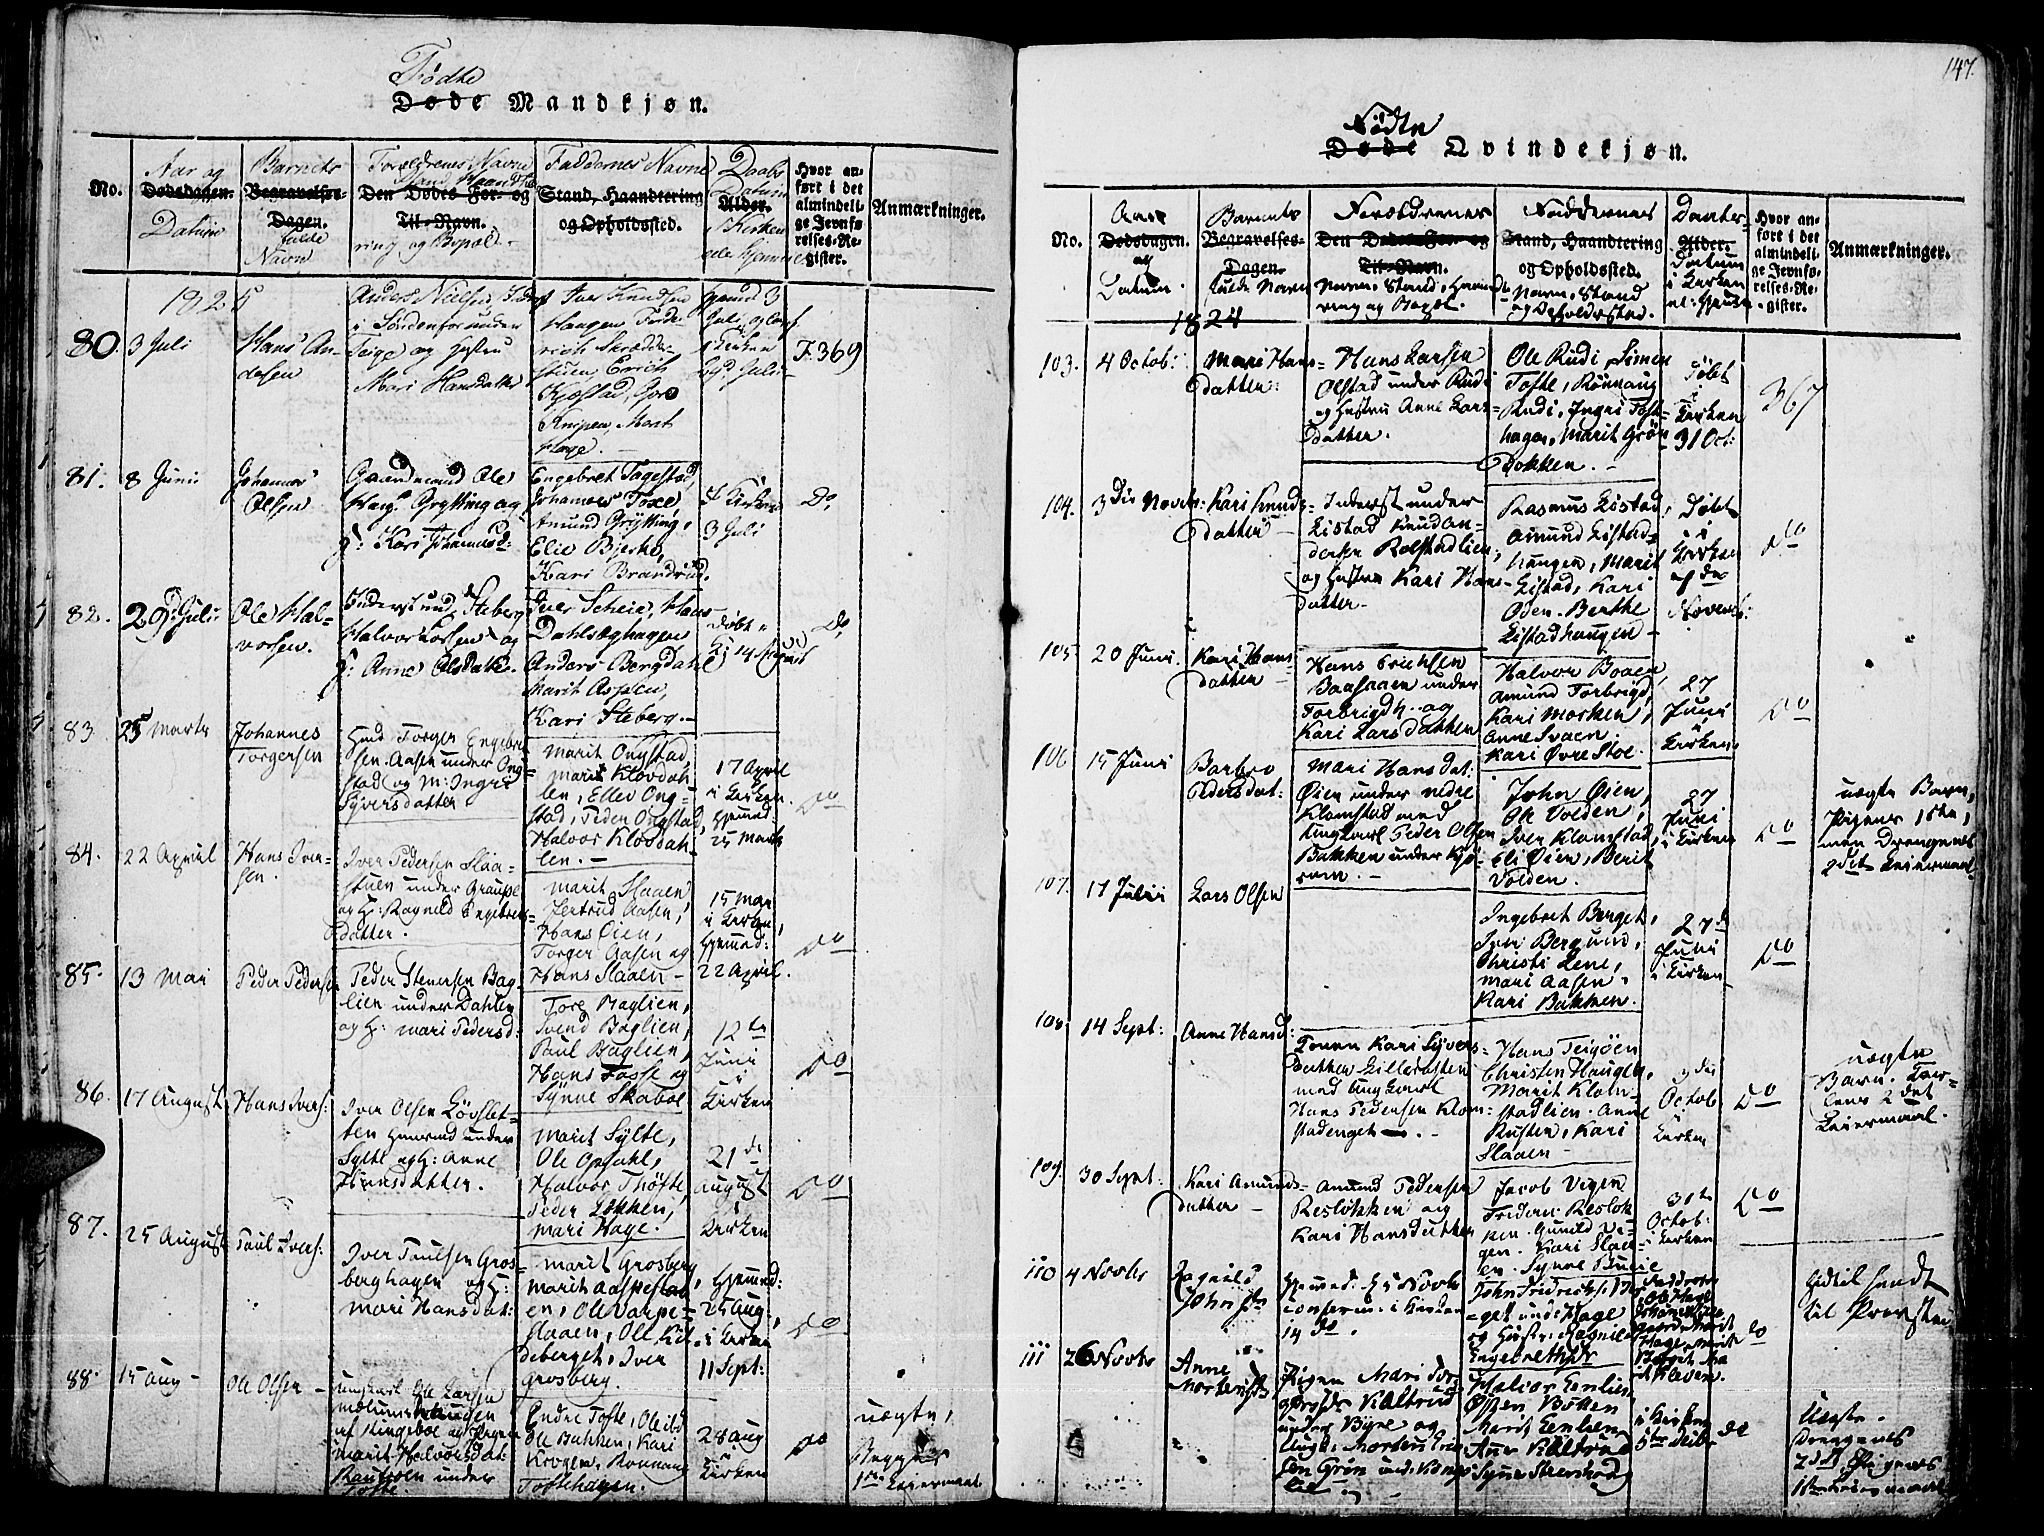 Fødte
Døde Mandkjøn.
No.
Aar og
Dødsdagen.
Datum
Barnets
Begravelses-
Dagen.
fulde
Navn
Forældrenes Navne
Stand, Haandte
Den Dødes For- og
Til-Navn.
ring og Bopæl.
Faddernes Navne
Stand, Haandtering
og Opholdssted.
Daabs
Datum
Alder.
i Kirken
eller hjemme
Hvor an-
ført i det
almindeli-
ge Jevnfø-
relses-Re-
gister.
Anmærkninger.
1825
80. 3 Juli
Hans An-
dersen
Anders Nielsen
i Sördenfor under
Teige og Hustru
Mari Hansdatter
Iver Knudsen
Haugen, Fride-
rich Skrædder-
stuen, Erich
Kjøstad, Goro
Knipen, Marit
Hage.
hjemd 3
Juli og conf
i Kirken
Juli
F. 369
81. 8 Juni
Johannes
Olsen
Gaardmand Ole
Hans. Grytting og
H: Kari Johannesd:
Engebret Fagestad,
Johannes Foxe,
Amund Grytting,
Elie Bjerke,
Kari Brandrud.
i Kirken
3 Juli
Do
82. 29d Juli
Ole Hal-
vorsen.
Inderst und Steberg
Halvor Larsen og
H: Anne Olsdatter.
Iver Scheie, Hans
Dahlseghagen
Anders Bergdahl
Marit Aspen,
Kari Steberg.
Døbt
14 August
Do
83. 25 Marts
Johannes
Torgersen
Hmd Torger Engebret
sen Aasen under Ong-
stad og M: Ingri
Syversdatter
Marit Ongstad,
Marit Klovdah-
len, Ellev Ong-
stad, Peder Ongstad,
Halvor Klovdah-
len.
17 April
i Kirken.
hjemmed:
25 Marts
Do
84. 22 April
Hans Iver-
sen.
Iver Pedersen Slaa-
stuen under Graupe
og H: Ragnild Engebrets-
datter.
Marit Slaaen
Jertrud Aasen,
Hans Øien,
Torger Aasen og
Hans Slaaen
15 Mai
i Kirken
hjemmed:
22 April.
Do
85. 13 Mai
Peder Pedersen
Peder Stenersen Bag-
lien under Dahlen
og H: Mari Pedersd:
Tore Baglien,
Svend Baglien,
Paul Baglien,
Hans Fosse og
Synne Skaboe
12te
Juni
i
Kirken
Do
86. 17 August
Hans Ivers:
Iver Olsen Løvslet-
ten Huusmd under
Sylte og H: Anne
Hansdatter.
Marit Sylte,
Ole Opdahl,
Halvor Thøfte,
Peder Løkken,
Mari Hage.
21de
August
i
Kirken
Do
87. 25 August
Paul Ivers:
Iver Paulsen Gros-
berghagen og H:
Mari Hansdat:
Marit Grosberg
Marit Aaspestad
en, Ole Varpe-
slaaen, Ole Kil-
deberget, Iver
Grosberg.
Hjemmed:
25 Aug:,
i Kirken
11 Sept:
Do
88. 15 Aug
Ole Olsen
Ungkarl Ole Larsen
af Ringeboe og Pigen
Marit Halvorsdat:
under
Tofte.
Endre Tofte, Ole
Ole Bakken, Kari
Krogen, Rønnaug
Toftehagen.
28 Aug
i
Kirken
Do
uægte,
Begges
1ste Leiermaal
147.
Fødte
Døde Qvindekjøn.
No.
Aar
Dødsdagen.
og
Datum.
Barnets
Begravelses-
Dagen.
fulde Navn
Forældrenes
Den Dødes For- og
Til-Navn.
Navn, Stand, Haand
ring og Bopæl.
Faddernes
Stand, Haandtering
og Opholdssted.
Navn, Stand
og Opholdssted.
Daabs
Alder.
Datum
i Kirken
el: hjemme
Hvor an-
ført i det
almindeli-
ge Jevnfø-
relses-Re-
gister.
Anmærkninger.
1824
103. 4 Octob:
Mari Hans-
datter:
Hans Larsen
Olstad under Rudi
og Hustru Anne Lars-
datter.
Ole Rudi, Simen
Tofte, Rønnaug
Rudi, Ingri Toft-
hagen, Marit Grøn-
Dokken.
Døbt
i
Kirken
31 Oct:
367
104. 3die Novebr:
Kari Knuds-
datter
Inderst under
Listad Knud An-
dersen Rolstadlien,
og Hustru Kari Hans-
datter.
Rasmus Listad,
Amund Listad-
haugen, Marit
Listad, Kari
Oden, Berthe
Listadhaugen
Døbt
i
Kirken
Novemb:
do
105 20 Juni.
Kari Hans-
datter
Hans Erichsen
Baasaaen under
Forbrigdh. og
Kari Larsdatter
Halvor Boaen,
Amund Forbrigd,
Kari Morken,
Anne Svaen,
Kari Øvre Stoe.
27
Juni
i
Kirken.
Do
106 15 Juni
Barbro
Pedersdat:
Mari Hansdat:
Øien under Nedre
Klomstad med
Ungkarl Peder Olsen
Bakken under Kjø-
rum.
John Øien,
Ole Volden,
Iver Klomstad,
Eli Øien, Berit
Volden.
27
Juni
i Kirken
Do
uægte Barn,
Pigens 1ste,
men Drengens
2det Leiermaal.
107. 17 Julii
Lars Olsen
Ingebret Berget,
Iver Berguund,
Christi Lene,
Mari Aasen,
Kari Bakken.
27d
Juni
i Kirken
Do
108. 14 Sept:
Anne Hansd:
Konen Kari Syvers-
datter Lillesletten
med Ungkarl
Hans Pedersen Klom-
stadenget.
Hans Teigøen
Christen Haugen,
Marit Klom-
stadlien, Anne
Rusten, Kari
Slaaen
Octob
Kirken
Do
uægte
Barn. Kar-
lens 2det
Leiermaal.
109. 30 Sept.
Kari Amunds-
datter
Amund Pedersen
Resløkken og
Kari Hansdatter
Jacob Vigen
Frideric Resløk-
ken. Gunild Vi-
gen. Kari Slaa-
en. Synne Bu
30te
Octob:
i Kirken
Do
110 4 Novbr
Ragnild
Johnsdr
Hjemmed. Novbr
conferm. i Kirken
14 de.
John Fridrichs:
get und: Hage
og Hustr: Ragnild
Engebrethsdr
Faddere
Ole Hage
do
Indtil sendt
til Præsten
111 26 Novbr
Anne
Mortensdr
Pigen Mari Tor-
gersdr Kaltrud
under Bye og
Ungk: Morten Eric
sen Grøn und: Kongs
lie
Halvor Enlien,
Osten Bøken
Marit Enlien
Anne Kaltrud
Synne
i Kirken
5te Decbr
do
Uægte.
Drengens
2det, Pigens
1ste Leiermaal